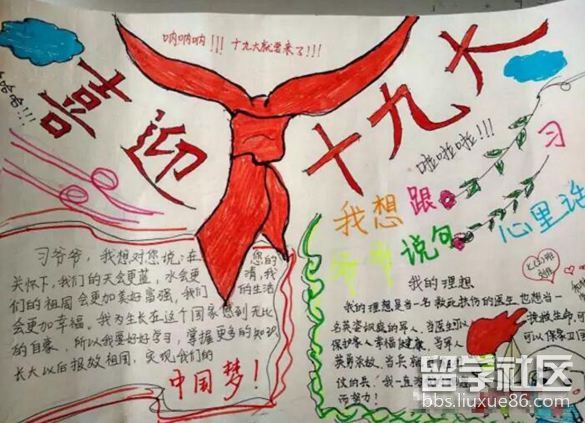 呐呐呐!!! 十九大就要来了!!!
喜迎十九大
啦啦啦啦!!!
我想跟习
爷爷说句心里话
习爷爷,我想对您说:在您的
关怀下,我们的天会更蓝,水会更清,我
们的祖国会更加美好富强,我们的生活
会更加幸福。我为生长在这个国家感到无比
的自豪,所以我要好好学习,掌握更多的知识
长大以后报效祖国,实现我们的
中国梦!
我的理想
我的理想是当一名救死扶伤的医生也想当一
名英姿飒爽的军人。当医生可以
保护家人幸福健康,当军人
可以保家卫国
英勇杀敌。当兵
而努力!
留学社区
bbs.liuxue86.com